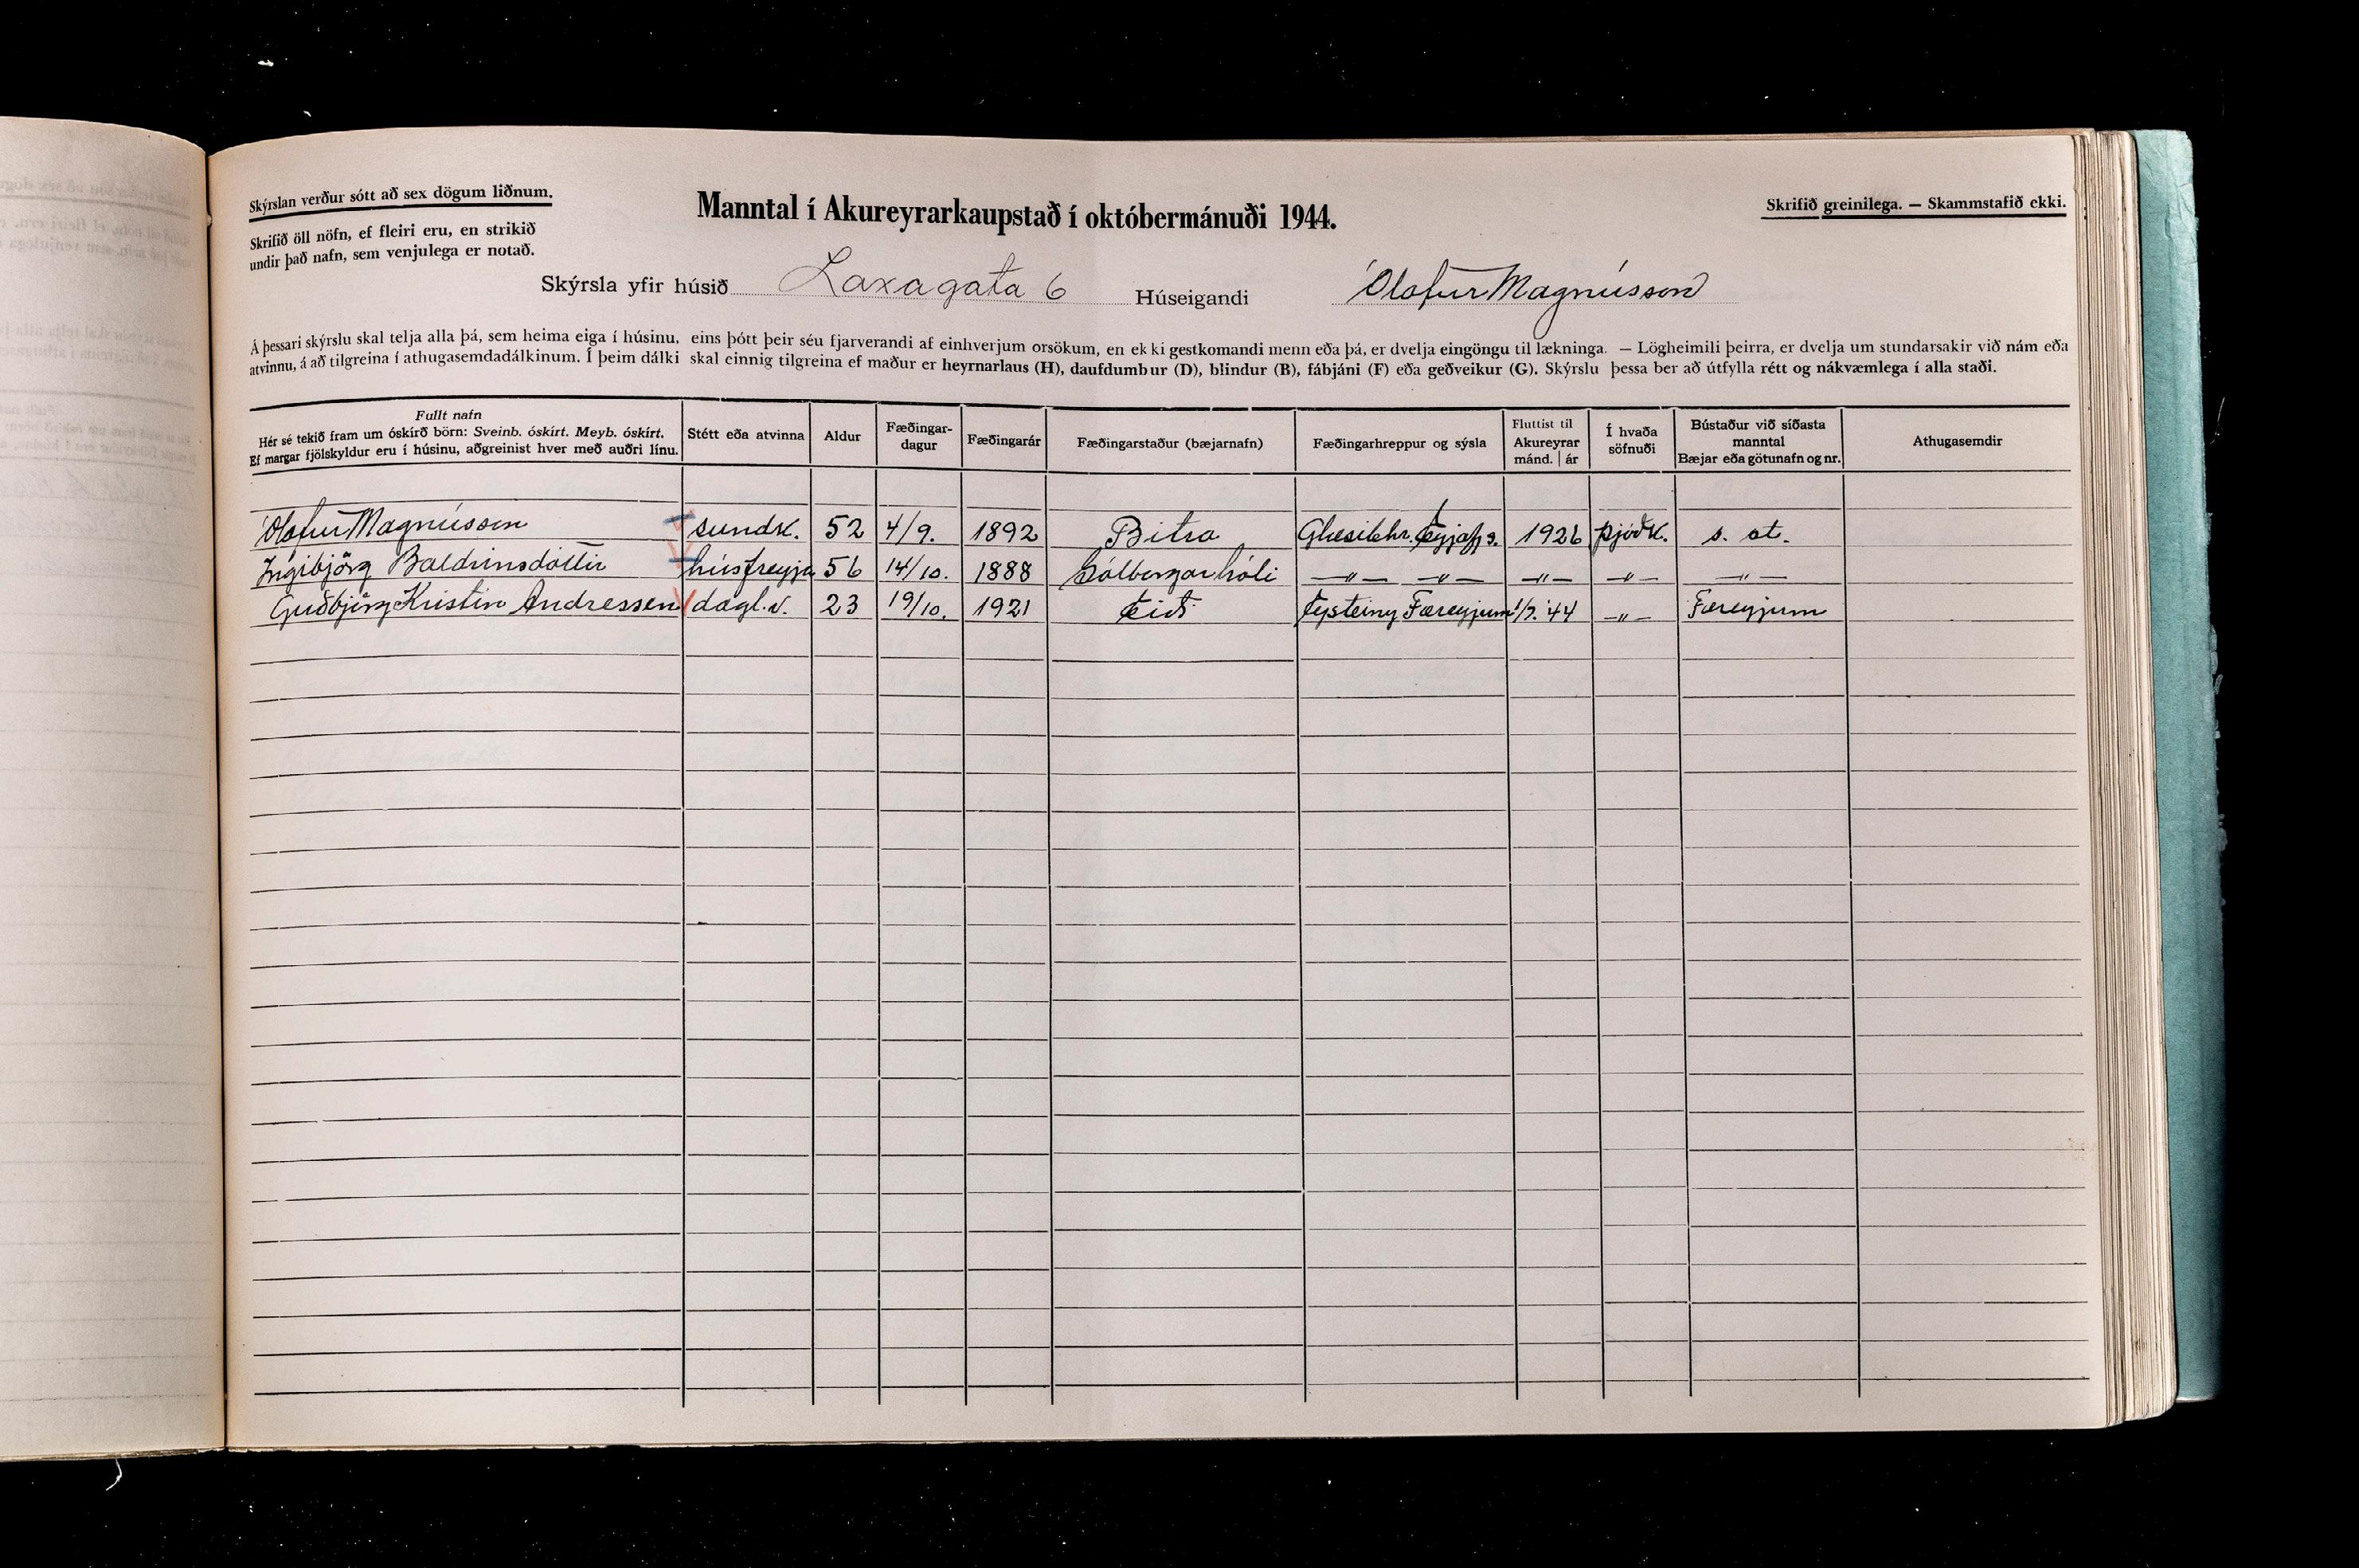 Skýrslan verður sótt að sex dögum liðnum.
Manntal í Akureyrarkaupstað í októbermánuði 1944.
Skrifið greinilega. — Skammstafið ekki.
Skrifið öll nöfn, ef fleiri eru, en strikið
undir það nafn, sem venjulega er notað.
Skýrsla yfir húsið Laxagata 6 Húseigandi Ólafur Magnússon
Á þessari skýrslu skal telja alla þá, sem heima eiga í húsinu, eins þótt þeir séu fjarverandi af einhverjum orsökum, en ekki gestkomandi menn eða þá, er dvelja eingöngu til lækninga. — Lögheimili þeirra, er dvelja um stundarsakir við nám eða
atvinnu, á að tilgreina í athugasemdadálkinum. Í þeim dálki skal einnig tilgreina ef maður er heyrnarlaus (H), daufdumbur (D), blindur (B), fábjáni (F) eða geðveikur (G). Skýrslu þessa ber að útfylla rétt og nákvæmlega í alla staði.
Fullt nafn
Hér sé tekið fram um óskírð börn: Sveinb. óskírt. Meyb. óskírt.
Ef margar fjölskyldur eru í húsinu, aðgreinist hver með auðri línu.
Stétt eða atvinna
Aldur
Fæðingar-
dagur
Fæðingarár
Fæðingarstaður (bæjarnafn)
Fæðingarhreppur og sýsla
Fluttist til
Akureyrar
mánd. | ár
Í hvaða
söfnuði
Bústaður við síðasta
manntal
Bæjar eða götunafn og nr.
Athugasemdir
Ólafur Magnússon sundk. 52 4/9. 1892 Bitra Glæsibhr. Eyjafj s. 1926 þjóðk. s. st.
Ingibjörg Baldvinsdóttir húsfreyja 56 14/10. 1888 Sólborgarhóli —〃— —〃— —〃— —〃— —〃—
Guðbjörg Kristin Andressen dagl.v. 23 19/10. 1921 Eiði Eysteiny Færeyjum 1/7. '44 —〃— Færeyjum